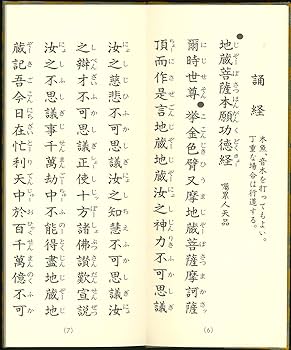 誦経
木魚、音木を打ってもよい。
丁重な場合は行道する。
●地蔵菩薩本願功徳経。 嘱累人天品
爾時世尊●挙金色臂又摩地蔵菩薩摩訶薩
頂而作是言地蔵地蔵汝之神力不可思議
(6)
汝之慈悲不可思議汝之知慧不可思議汝
之辯才不可思議正使十方諸佛讃歎宣説
汝之不思議事千萬劫中不能得盡地蔵地
蔵記吾今日在忉利天中於百千萬億不可
(7)